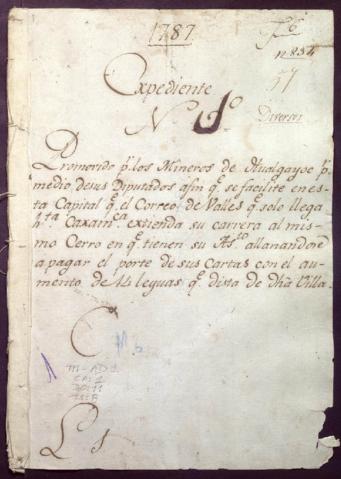 1787
n.834
57
Expediente
N.
Diversos
Promovido p.r los Mineros de Hualgayoc p.r
medio de sus Diputados afin q.e se facilite en es
ta Capital q.e el Correo de Valles q.e solo llega
h.ta Caxam.ca extienda su carrera al mis
mo Cerro en q.e tienen su As.to allanandose
a pagar el porte de sus Cartas con el au
mento de 14 leguas q.e dista de dha Villa.
C